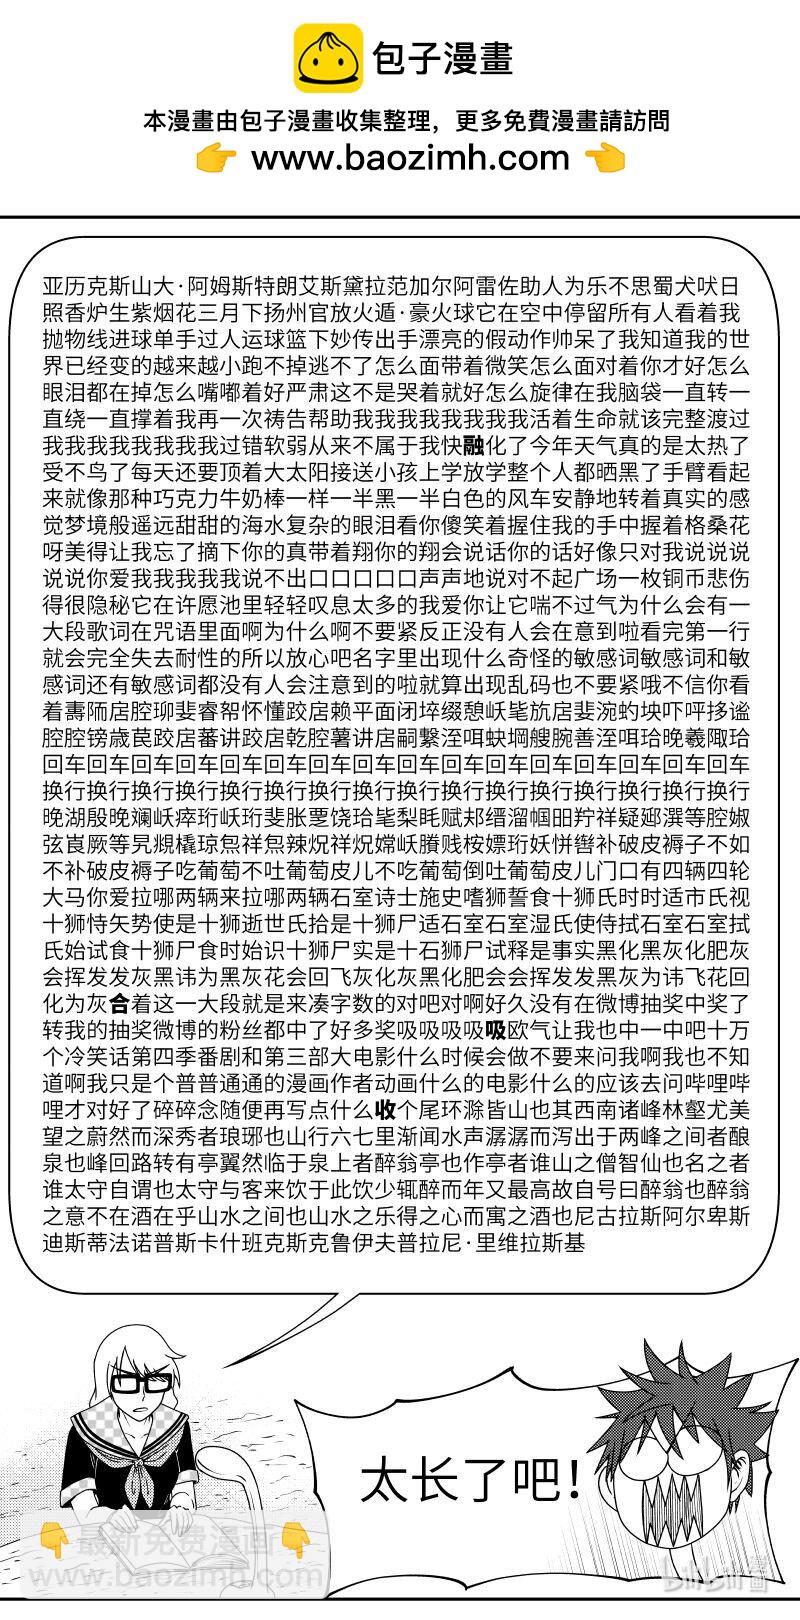 包子漫畫
本漫畫由包子漫畫收集整理，更多免費漫畫請訪問
www.baozimh.com
亚历克斯山大·阿姆斯特朗艾斯黛拉范加尔阿雷佐助人为乐不思蜀犬吠日
照香炉生紫烟花三月下扬州官放火遁·豪火球它在空中停留所有人看着我
抛物线进球单手过人运球篮下妙传出手漂亮的假动作帅呆了我知道我的世
界已经变的越来越小跑不掉逃不了怎么面带着微笑怎么面对着你才好怎么
眼泪都在掉怎么嘴嘟着好严肃这不是哭着就好怎么旋律在我脑袋一直转一
直绕一直撑着我再一次祷告帮助我我我我我我我我活着生命就该完整渡过
我我我我我我我我过错软弱从来不属于我快融化了今年天气真的是太热了
受不鸟了每天还要顶着大太阳接送小孩上学放学整个人都晒黑了手臂看起
来就像那种巧克力牛奶棒一样一半黑一半白色的风车安静地转着真实的感
觉梦境般遥远甜甜的海水复杂的眼泪看你傻笑着握住我的手中握着格桑花
呀美得让我忘了摘下你的真带着翔你的翔会说话你的话好像只对我说说说
说说你爱我我我我我说不出口口口口口声声地说对不起广场一枚铜币悲伤
得很隐秘它在许愿池里轻轻叹息太多的我爱你让它喘不过气为什么会有一
大段歌词在咒语里面啊为什么啊不要紧反正没有人会在意到啦看完第一行
就会完全失去耐性的所以放心吧名字里出现什么奇怪的敏感词敏感词和敏
感词还有敏感词都没有人会注意到的啦就算出现乱码也不要紧哦不信你看
回车回车回车回车回车回车回车回车回车回车回车回车回车回车回车回车
换行换行换行换行换行换行换行换行换行换行换行换行换行换行换行换行
不补破皮褥子吃葡萄不吐葡萄皮儿不吃葡萄倒吐葡萄皮儿门口有四辆四轮
大马你爱拉哪两辆来拉哪两辆石室诗士施史嗜狮誓食十狮氏时时适市氏视
十狮恃矢势使是十狮逝世氏拾是十狮尸适石室石室湿氏使侍拭石室石室拭
氏始试食十狮尸食时始识十狮尸实是十石狮尸试释是事实黑化黑灰化肥灰
会挥发发灰黑讳为黑灰花会回飞灰化灰黑化肥会会挥发发黑灰为讳飞花回
化为灰合着这一大段就是来凑字数的对吧对啊好久没有在微博抽奖中奖了
转我的抽奖微博的粉丝都中了好多奖吸吸吸吸吸欧气让我也中一中吧十万
个冷笑话第四季番剧和第三部大电影什么时候会做不要来问我啊我也不知
道啊我只是个普普通通的漫画作者动画什么的电影什么的应该去问哔哩哔
哩才对好了碎碎念随便再写点什么收个尾环滁皆山也其西南诸峰林壑尤美
望之蔚然而深秀者琅琊也山行六七里渐闻水声潺潺而泻出于两峰之间者酿
泉也峰回路转有亭翼然临于泉上者醉翁亭也作亭者谁山之僧智仙也名之者
谁太守自谓也太守与客来饮于此饮少辄醉而年又最高故自号曰醉翁也醉翁
之意不在酒在乎山水之间也山水之乐得之心而寓之酒也尼古拉斯阿尔卑斯
迪斯蒂法诺普斯卡什班克斯克鲁伊夫普拉尼·里维拉斯基
太长了吧！
最新免费漫画
www.baozimh.com
bilibili